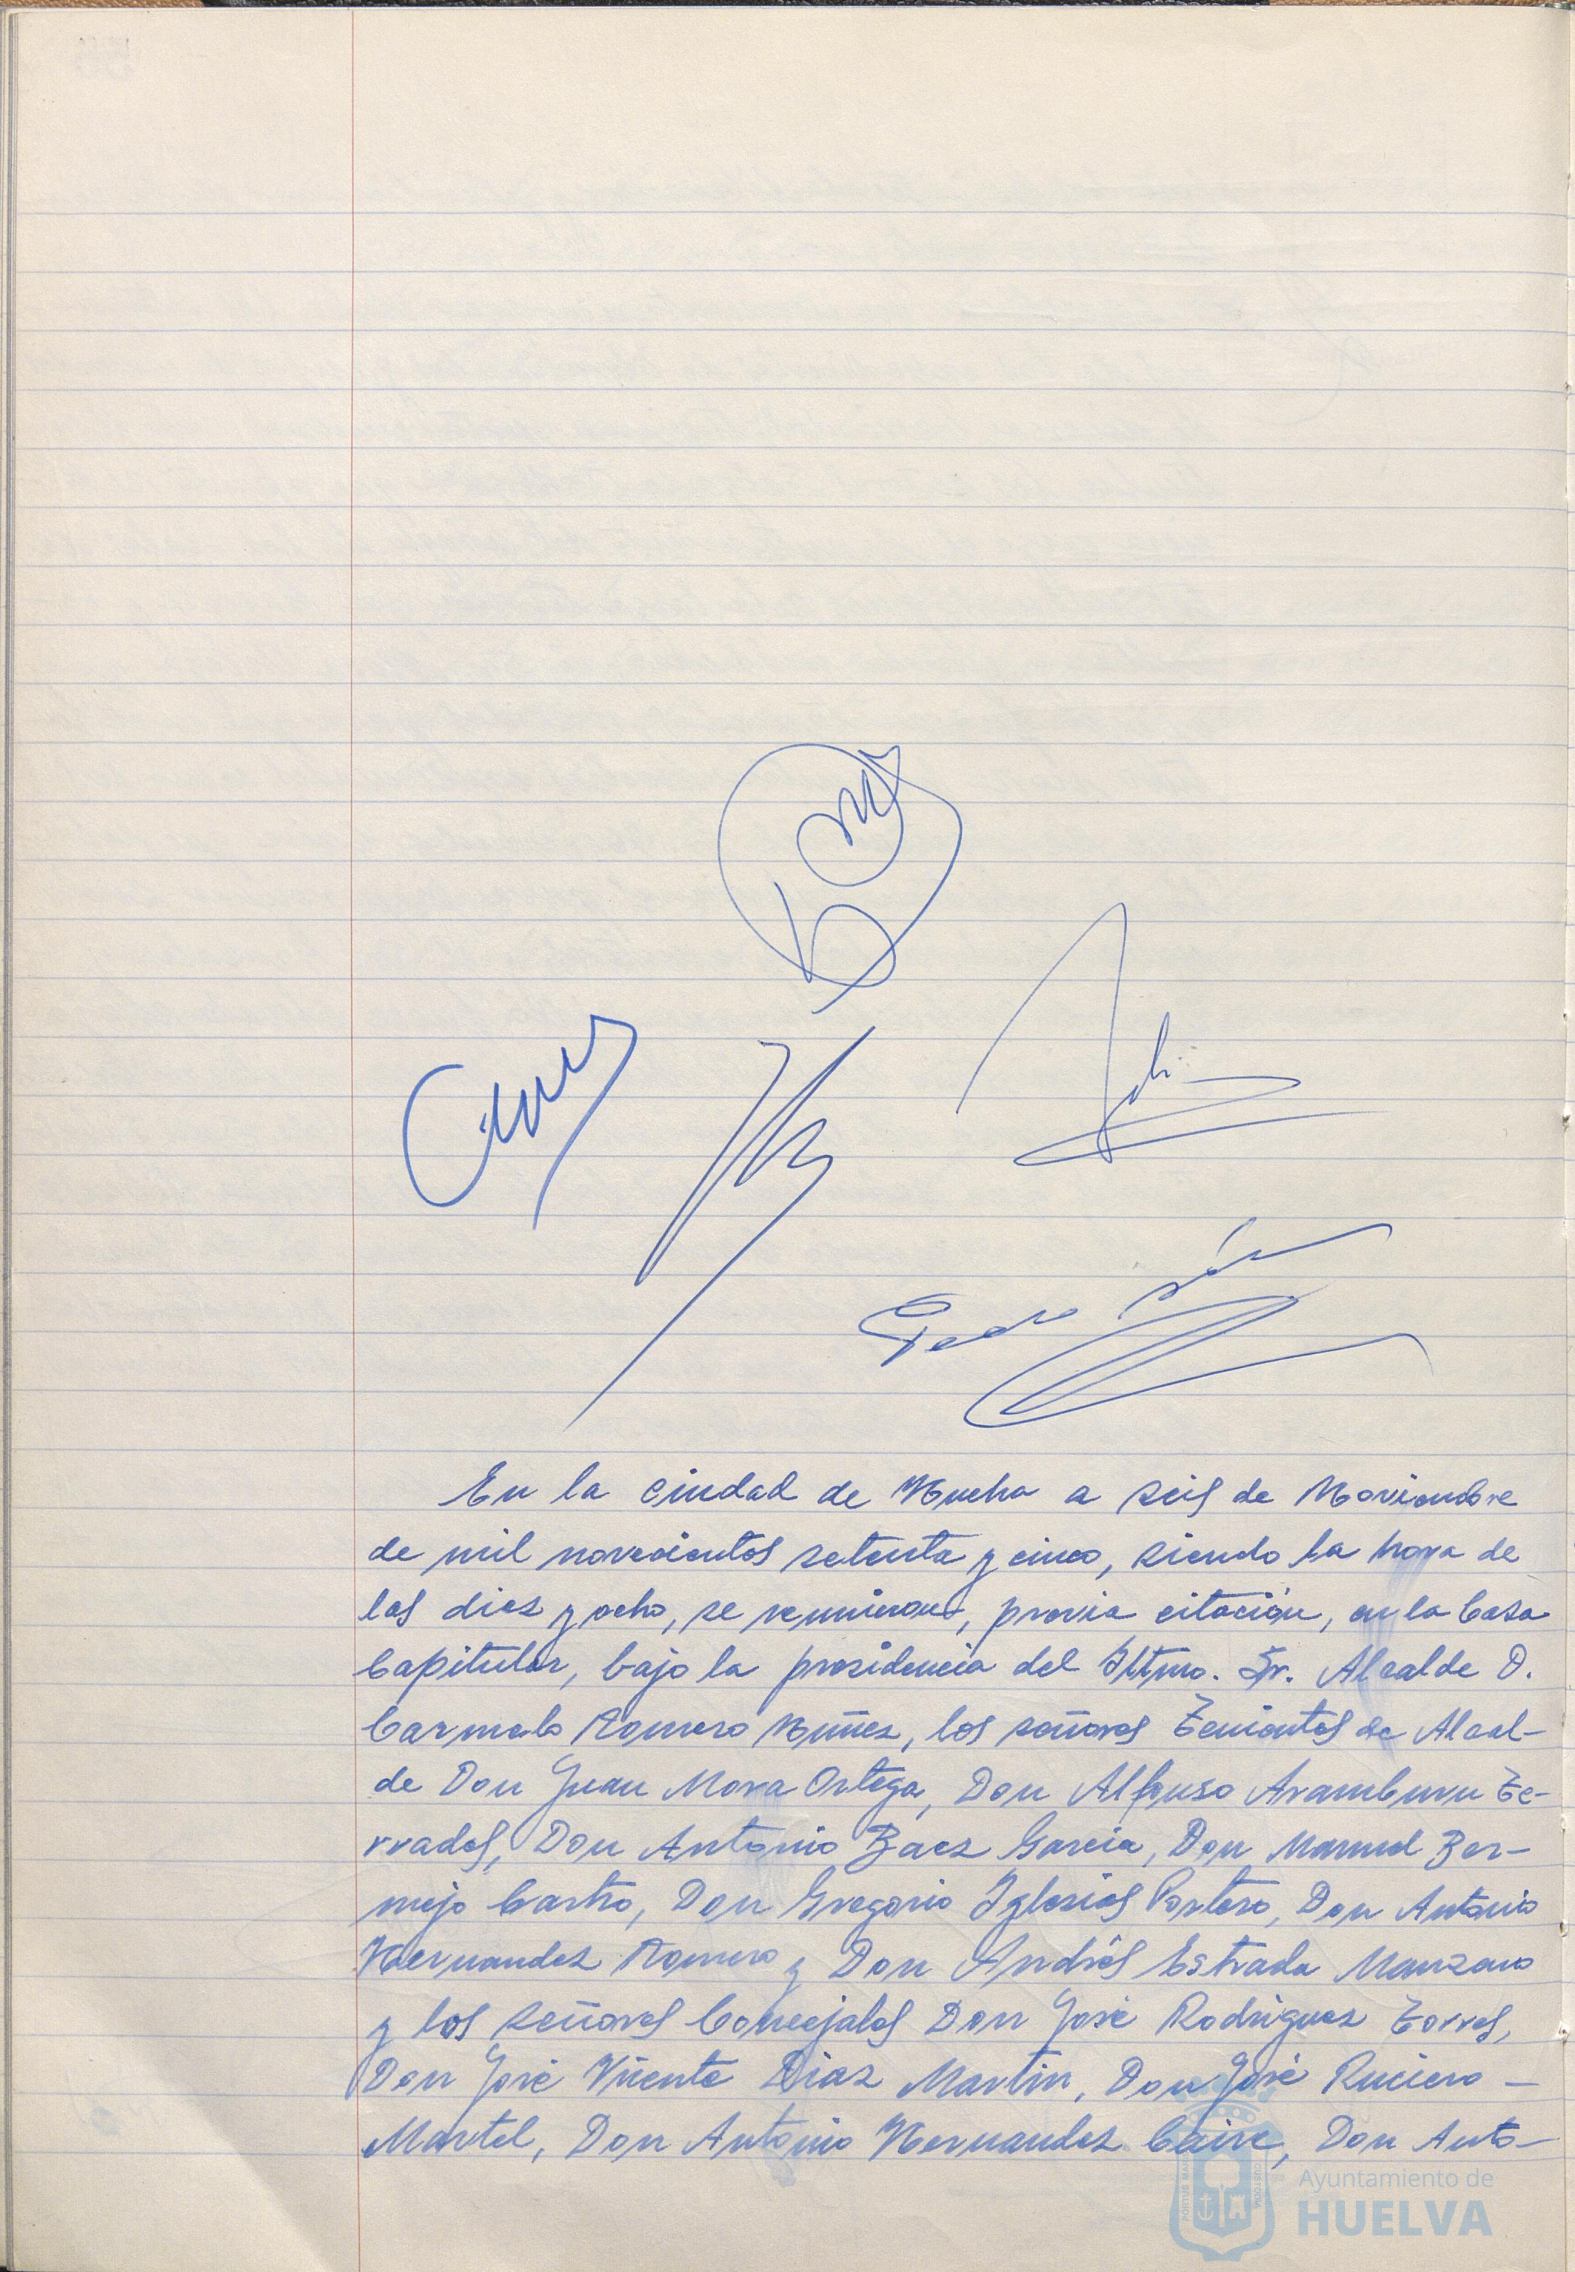 En la ciudad de Huelva a seis de Noviembre
de mil novecientos setenta y cinco, siendo la hora de
las diez y ocho, se reunieron, previa citación, en la Casa
Capitular, bajo la presidencia del Iltmo. Sr. Alcalde D.
Carmelo Romero Núñez, los señores Tenientes de Alcal-
de Don Juan Mora Ortega, Don Alfonso Aramburu Te-
rrades, Don Antonio Baez García, Don Manuel Ber-
mejo Castro, Don Gregorio Iglesias Portero, Don Antonio
Hernandez Romero y Don Andrés Estrada Manzano
y los señores Concejales Don José Rodriguez Torres,
Don José Vicente Diaz Martin, Don José Ruciero -
Martel, Don Antonio Hernandez Caire, Don Anto-
Ayuntamiento de
HUELVA